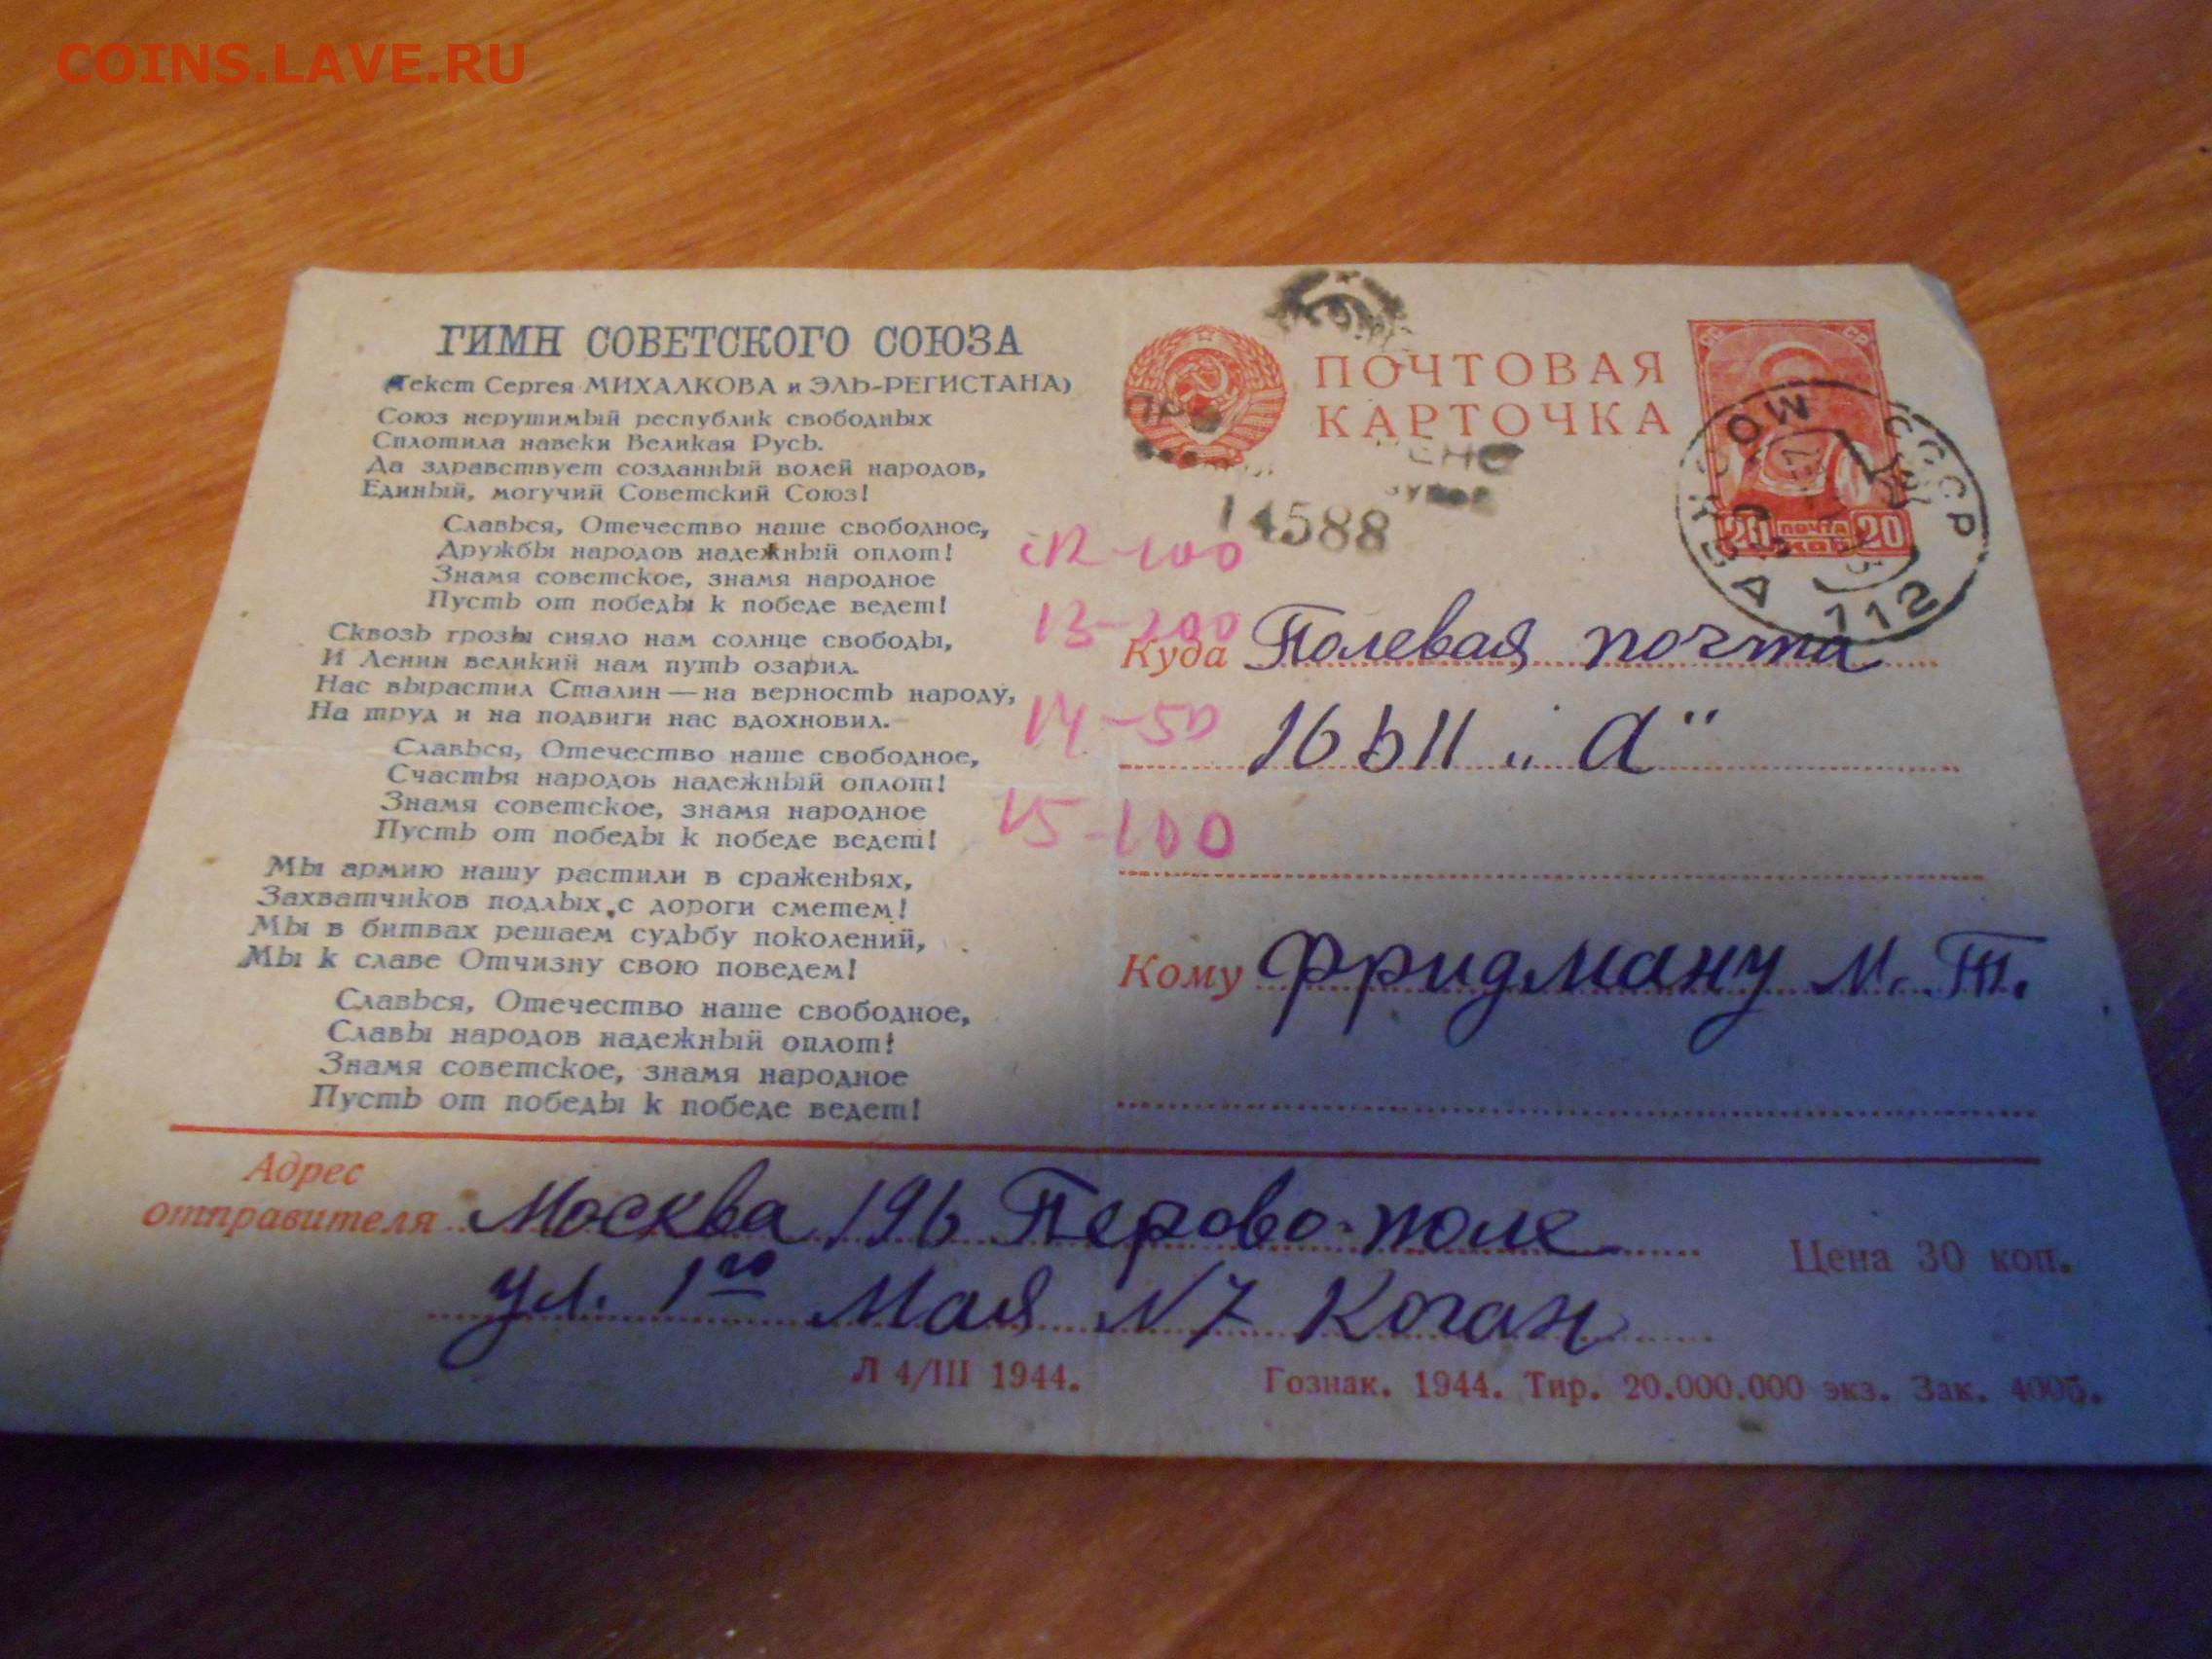 COINS.LAVE.RU
ГИМН СОВЕТСКОГО СОЮЗА
(Текст Сергея МИХАЛКОВА и ЭЛЬ-РЕГИСТАНА)
Союз нерушимый республик свободных
Сплотила навеки Великая Русь.
Да здравствует созданный волей народов,
Единый, могучий Советский Союз!
Славься, Отечество наше свободное,
Дружбы народов надежный оплот!
Знамя советское, знамя народное
Пусть от победы к победе ведет!
Сквозь грозы сияло нам солнце свободы,
И Ленин великий нам путь озарил.
Нас вырастил Сталин — на верность народу,
На труд и на подвиги нас вдохновил.
Славься, Отечество наше свободное,
Счастья народов надежный оплот!
Знамя советское, знамя народное
Пусть от победы к победе ведет!
Мы армию нашу растили в сраженьях,
Захватчиков подлых с дороги сметем!
Мы в битвах решаем судьбу поколений,
Мы к славе Отчизну свою поведем!
Славься, Отечество наше свободное,
Славы народов надежный оплот!
Знамя советское, знамя народное
Пусть от победы к победе ведет!
ПОЧТОВАЯ
КАРТОЧКА
СС СР
20 ПОЧТА 20
КОП
МОСКВА 112 СССР
14588
12-100
13-200
14-50
15-100
Куда Полевая почта
16611 „А“
Кому Фридману М. Т.
Адрес
отправителя Москва 196 Перово-поле
ул. 1го Мая N7 Коган
Цена 30 коп.
Л 4/III 1944.
Гознак. 1944. Тир. 20.000.000 экз. Зак.